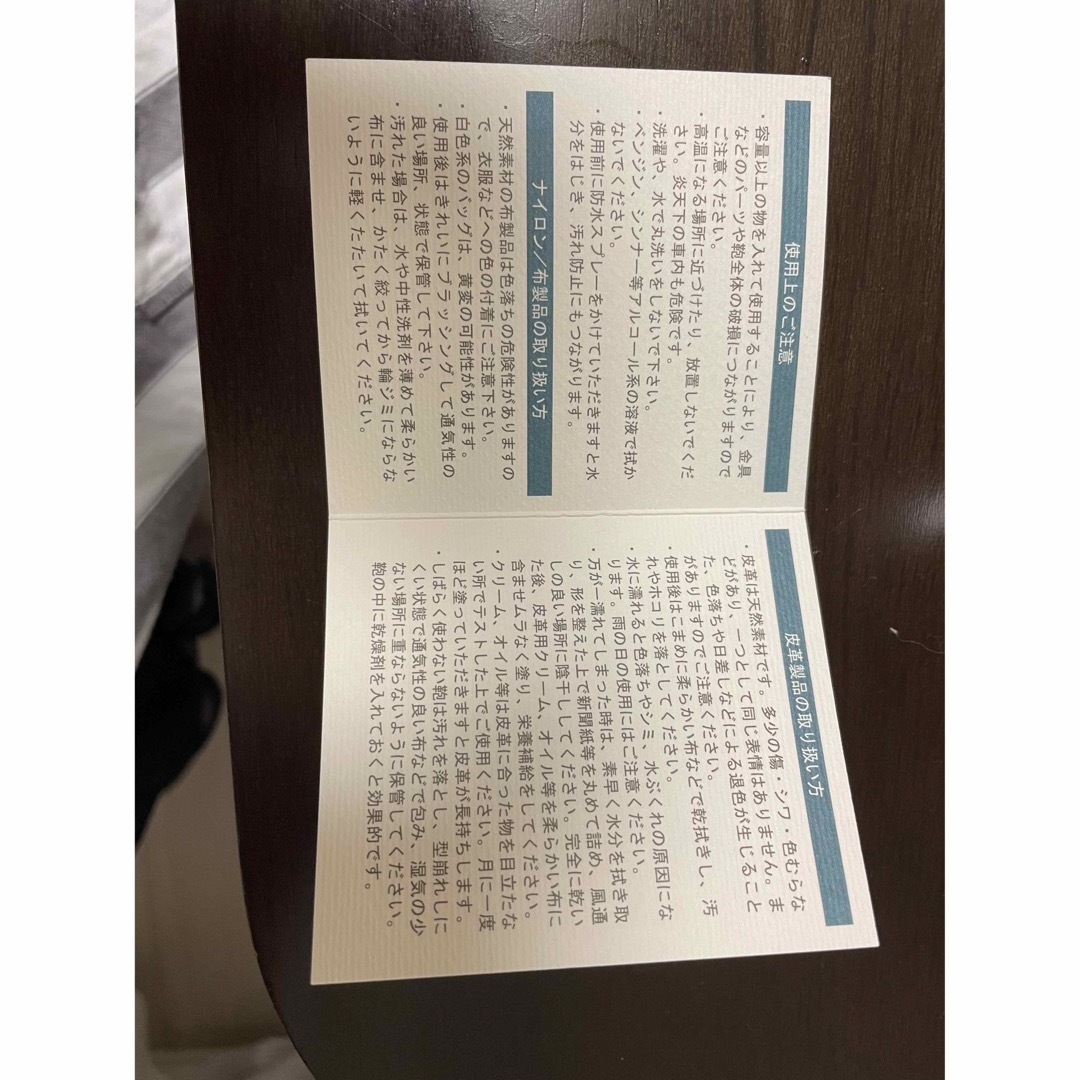 使用上のご注意
・容量以上の物を入れて使用することにより、金具
などのパーツや鞄全体の破損につながりますので
ご注意ください。
・高温になる場所に近づけたり、放置しないでくだ
さい。炎天下の車内も危険です。
・洗濯や、水で丸洗いをしないで下さい。
・ベンジン、シンナー等アルコール系の溶液で拭か
ないでください。
・使用前に防水スプレーをかけていただきますと水
分をはじき、汚れ防止にもつながります。
ナイロン／布製品の取り扱い方
・天然素材の布製品は色落ちの危険性がありますの
で、衣服などへの色の付着にご注意下さい。
・白色系のバッグは、黄変の可能性があります。
・使用後はきれいにブラッシングして通気性の
良い場所、状態で保管して下さい。
・汚れた場合は、水や中性洗剤を薄めて柔らかい
布に含ませ、かたく絞ってから輪ジミにならな
いように軽くたたいて拭いてください。
皮革製品の取り扱い方
・皮革は天然素材です。多少の傷・シワ・色むらな
どがあり、一つとして同じ表情はありません。ま
た、色落ちや日差しなどによる退色が生じること
がありますのでご注意ください。
・使用後はこまめに柔らかい布などで乾拭きし、汚
れやホコリを落としてください。
・水に濡れると色落ちやシミ、水ぶくれの原因にな
ります。雨の日の使用にはご注意ください。
・万が一濡れてしまった時は、素早く水分を拭き取
り、形を整えた上で新聞紙等を丸めて詰め、風通
しの良い場所に陰干ししてください。完全に乾い
た後、皮革用クリーム、オイル等を柔らかい布に
含ませムラなく塗り、栄養補給をしてください。
・クリーム、オイル等は皮革に合った物を目立たな
い所でテストした上でご使用ください。月に一度
ほど塗っていただきますと皮革が長持ちします。
・しばらく使わない鞄は汚れを落とし、型崩れしに
くい状態で通気性の良い布などで包み、湿気の少
ない場所に重ならないように保管してください。
鞄の中に乾燥剤を入れておくと効果的です。